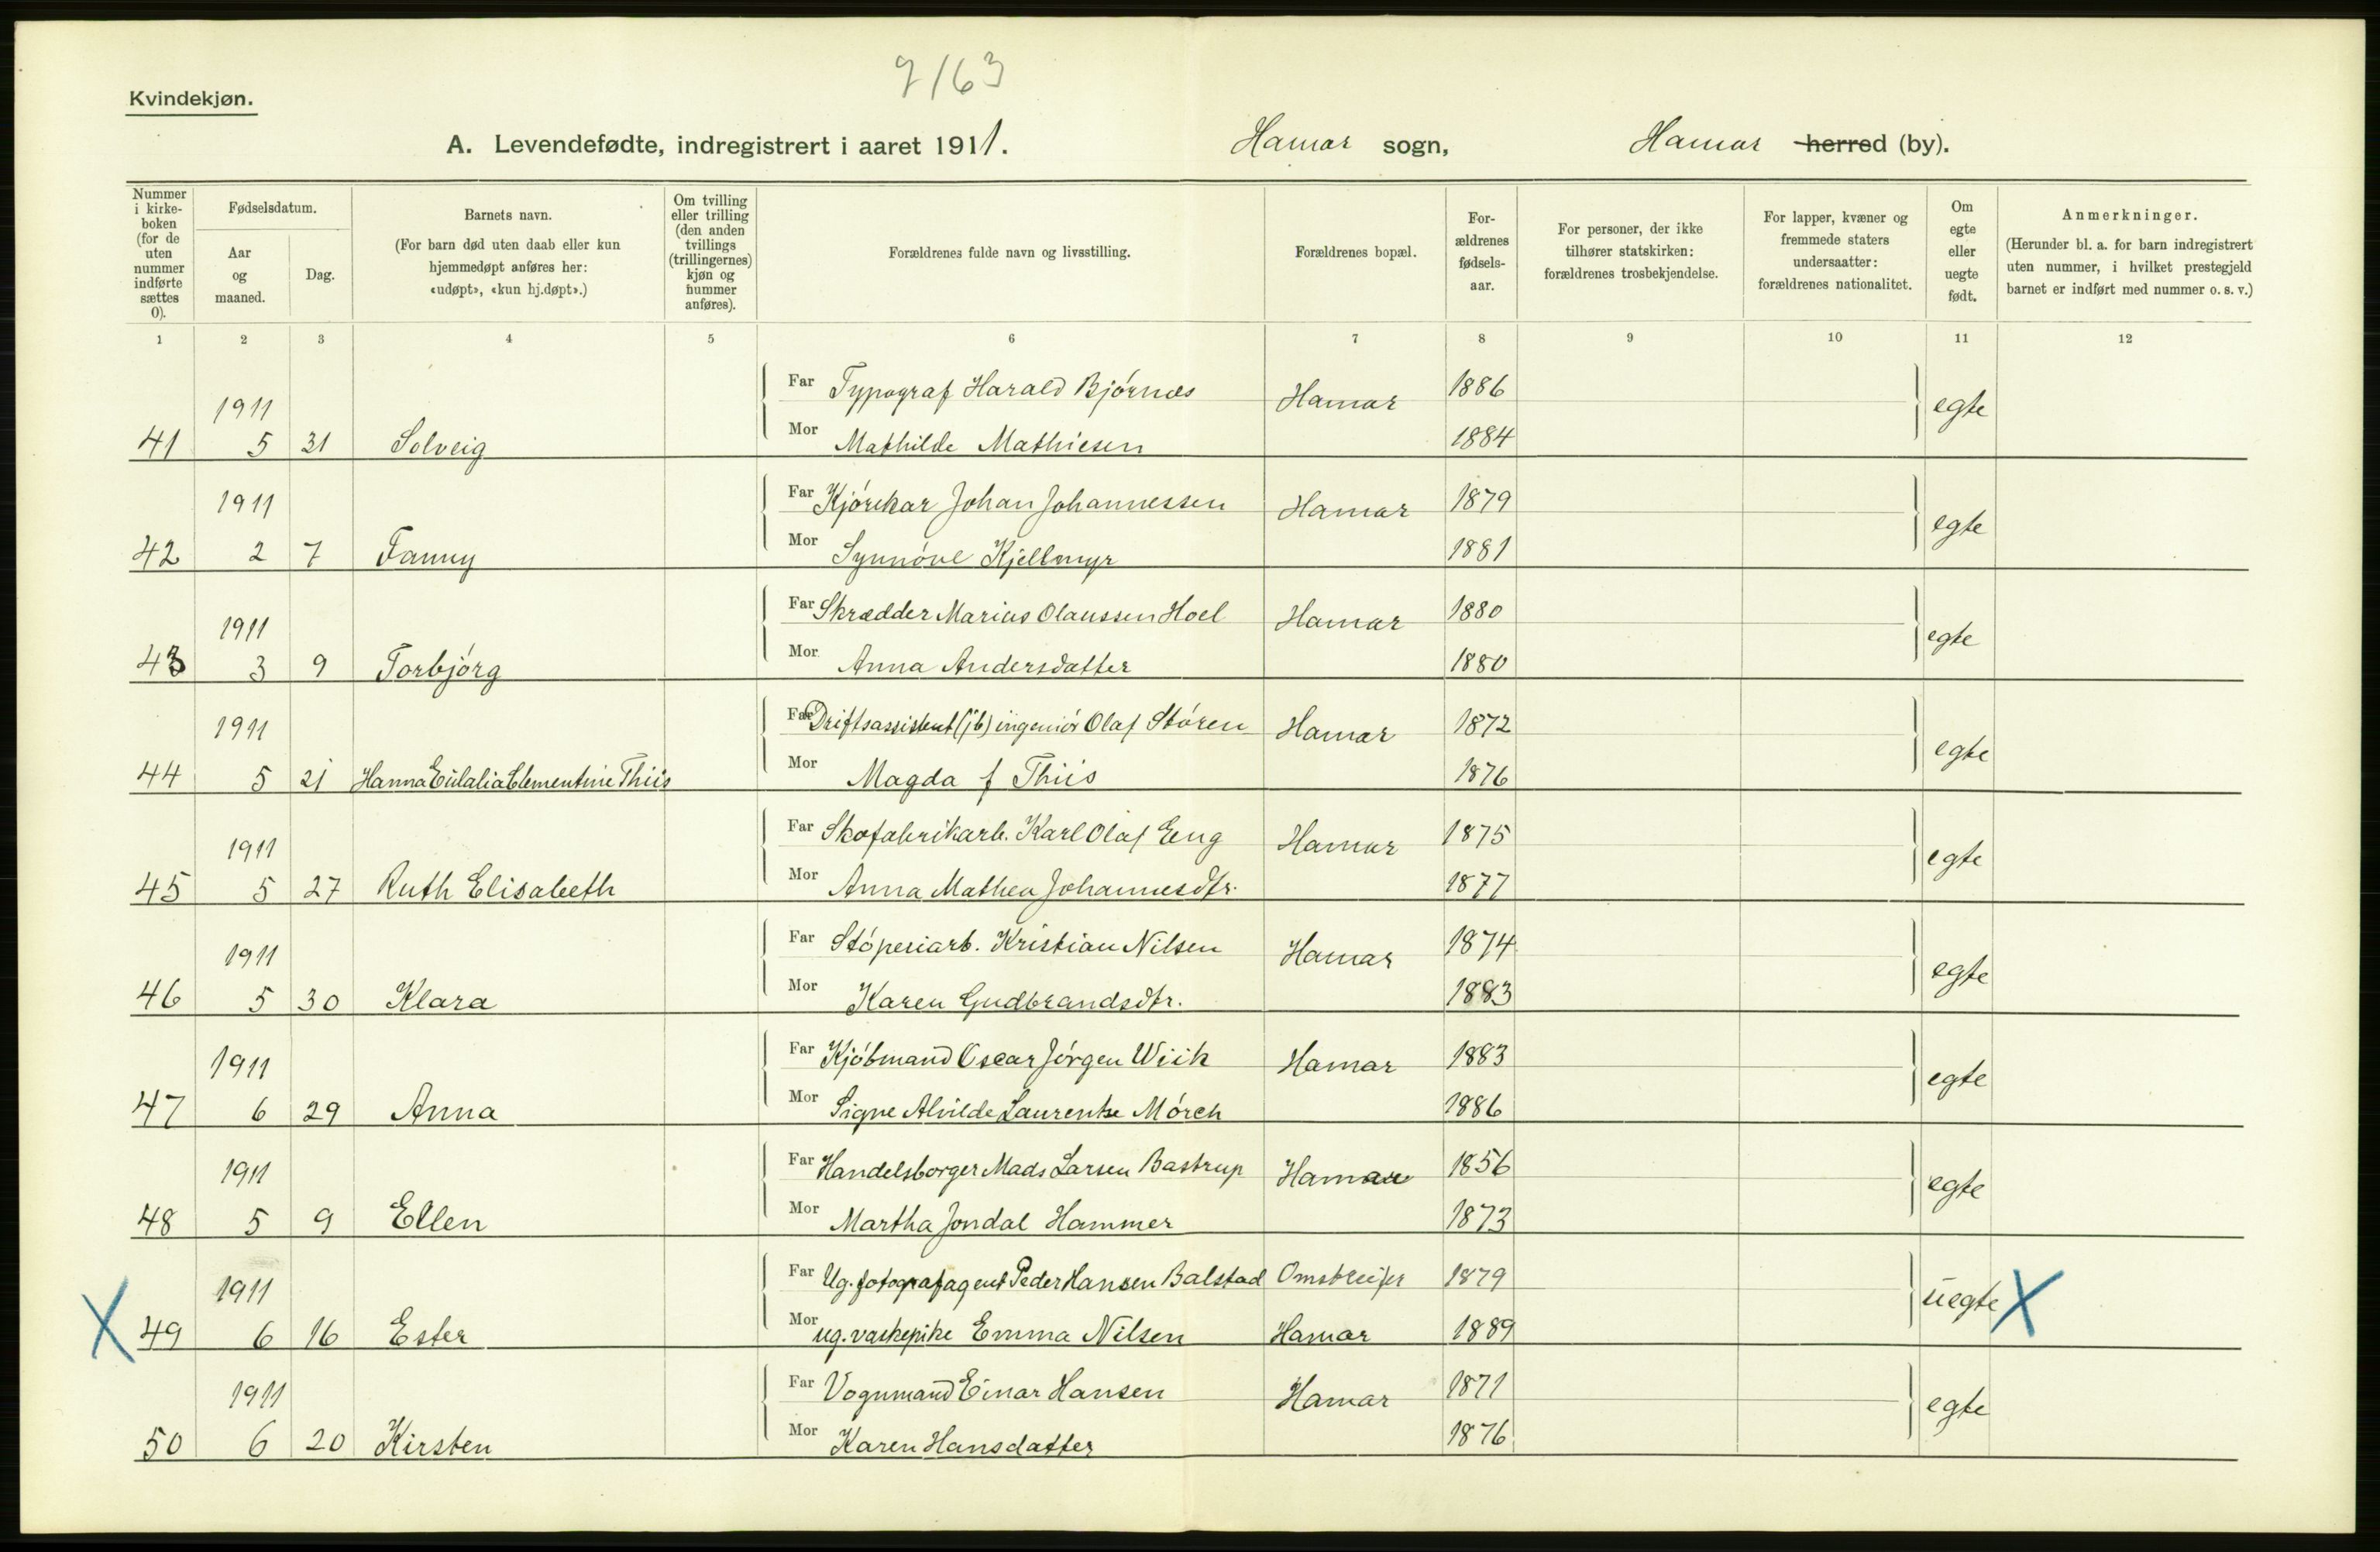 7163
Kvindekjøn.
A. Levendefødte, indregistrert i aaret 1911. Hamar sogn, Hamar herred (by).
Nummer i kirkeboken (for de uten nummer indførte sættes 0).
Fødselsdatum.
Aar og maaned.
Dag.
Barnets navn.
(For barn død uten daab eller kun hjemmedøpt anføres her: «udøpt», «kun hj.døpt».)
Om tvilling eller trilling (den anden tvillings (trillingernes) kjøn og nummer anføres).
Forældrenes fulde navn og livsstilling.
Forældrenes bopæl.
Forældrenes fødselsaar.
For personer, der ikke tilhører statskirken: forældrenes trosbekjendelse.
For lapper, kvæner og fremmede staters undersaatter: forældrenes nationalitet.
Om egte eller uegte født.
Anmerkninger.
(Herunder bl. a. for barn indregistrert uten nummer, i hvilket prestegjeld barnet er indført med nummer o. s. v.)
1 2 3 4 5 6 7 8 9 10 11 12
1911 Far Typograf Harald Bjørnæs Hamar 1886 egte
41 5 31 Solveig Mor Mathilde Mathiesen 1884
1911 Far Kjørekar Johan Johannessen Hamar 1879 egte
42 2 7 Fanny Mor Synnøve Kjellmyr 1881
1911 Far Skrædder Marius Olaussen Hoel Hamar 1880 egte
43 3 9 Torbjørg Mor Anna Andersdatter 1880
1911 Far Driftsassistent (jb) ingeniør Olaf Støren Hamar 1872 egte
44 5 21 Hanna Eulalia Clementine Thiis Mor Magda f Thiis 1876
1911 Far Skofabrikarb. Karl Olaf Eng Hamar 1875 egte
45 5 27 Ruth Elisabeth Mor Anna Mathea Johannesdtr. 1877
1911 Far Støperiarb. Kristian Nilsen Hamar 1874 egte
46 5 30 Klara Mor Karen Gudbrandsdtr. 1883
1911 Far Kjøbmand Oscar Jørgen Wiik Hamar 1883 egte
47 6 29 Anna Mor Signe Alvilde Laurentse Mørch 1886
1911 Far Handelsborger Mads Larsen Bastrup Hamar 1856 egte
48 5 9 Ellen Mor Martha Jondal Hammer 1873
1911 Far Ug. fotografagent Peder Hansen Balstad Omstreifer 1879 uegte X
X 49 6 16 Ester Mor ug. vaskepike Emma Nilsen Hamar 1889
1911 Far Vognmand Einar Hansen Hamar 1871 egte
50 6 20 Kirsten Mor Karen Hansdatter 1876